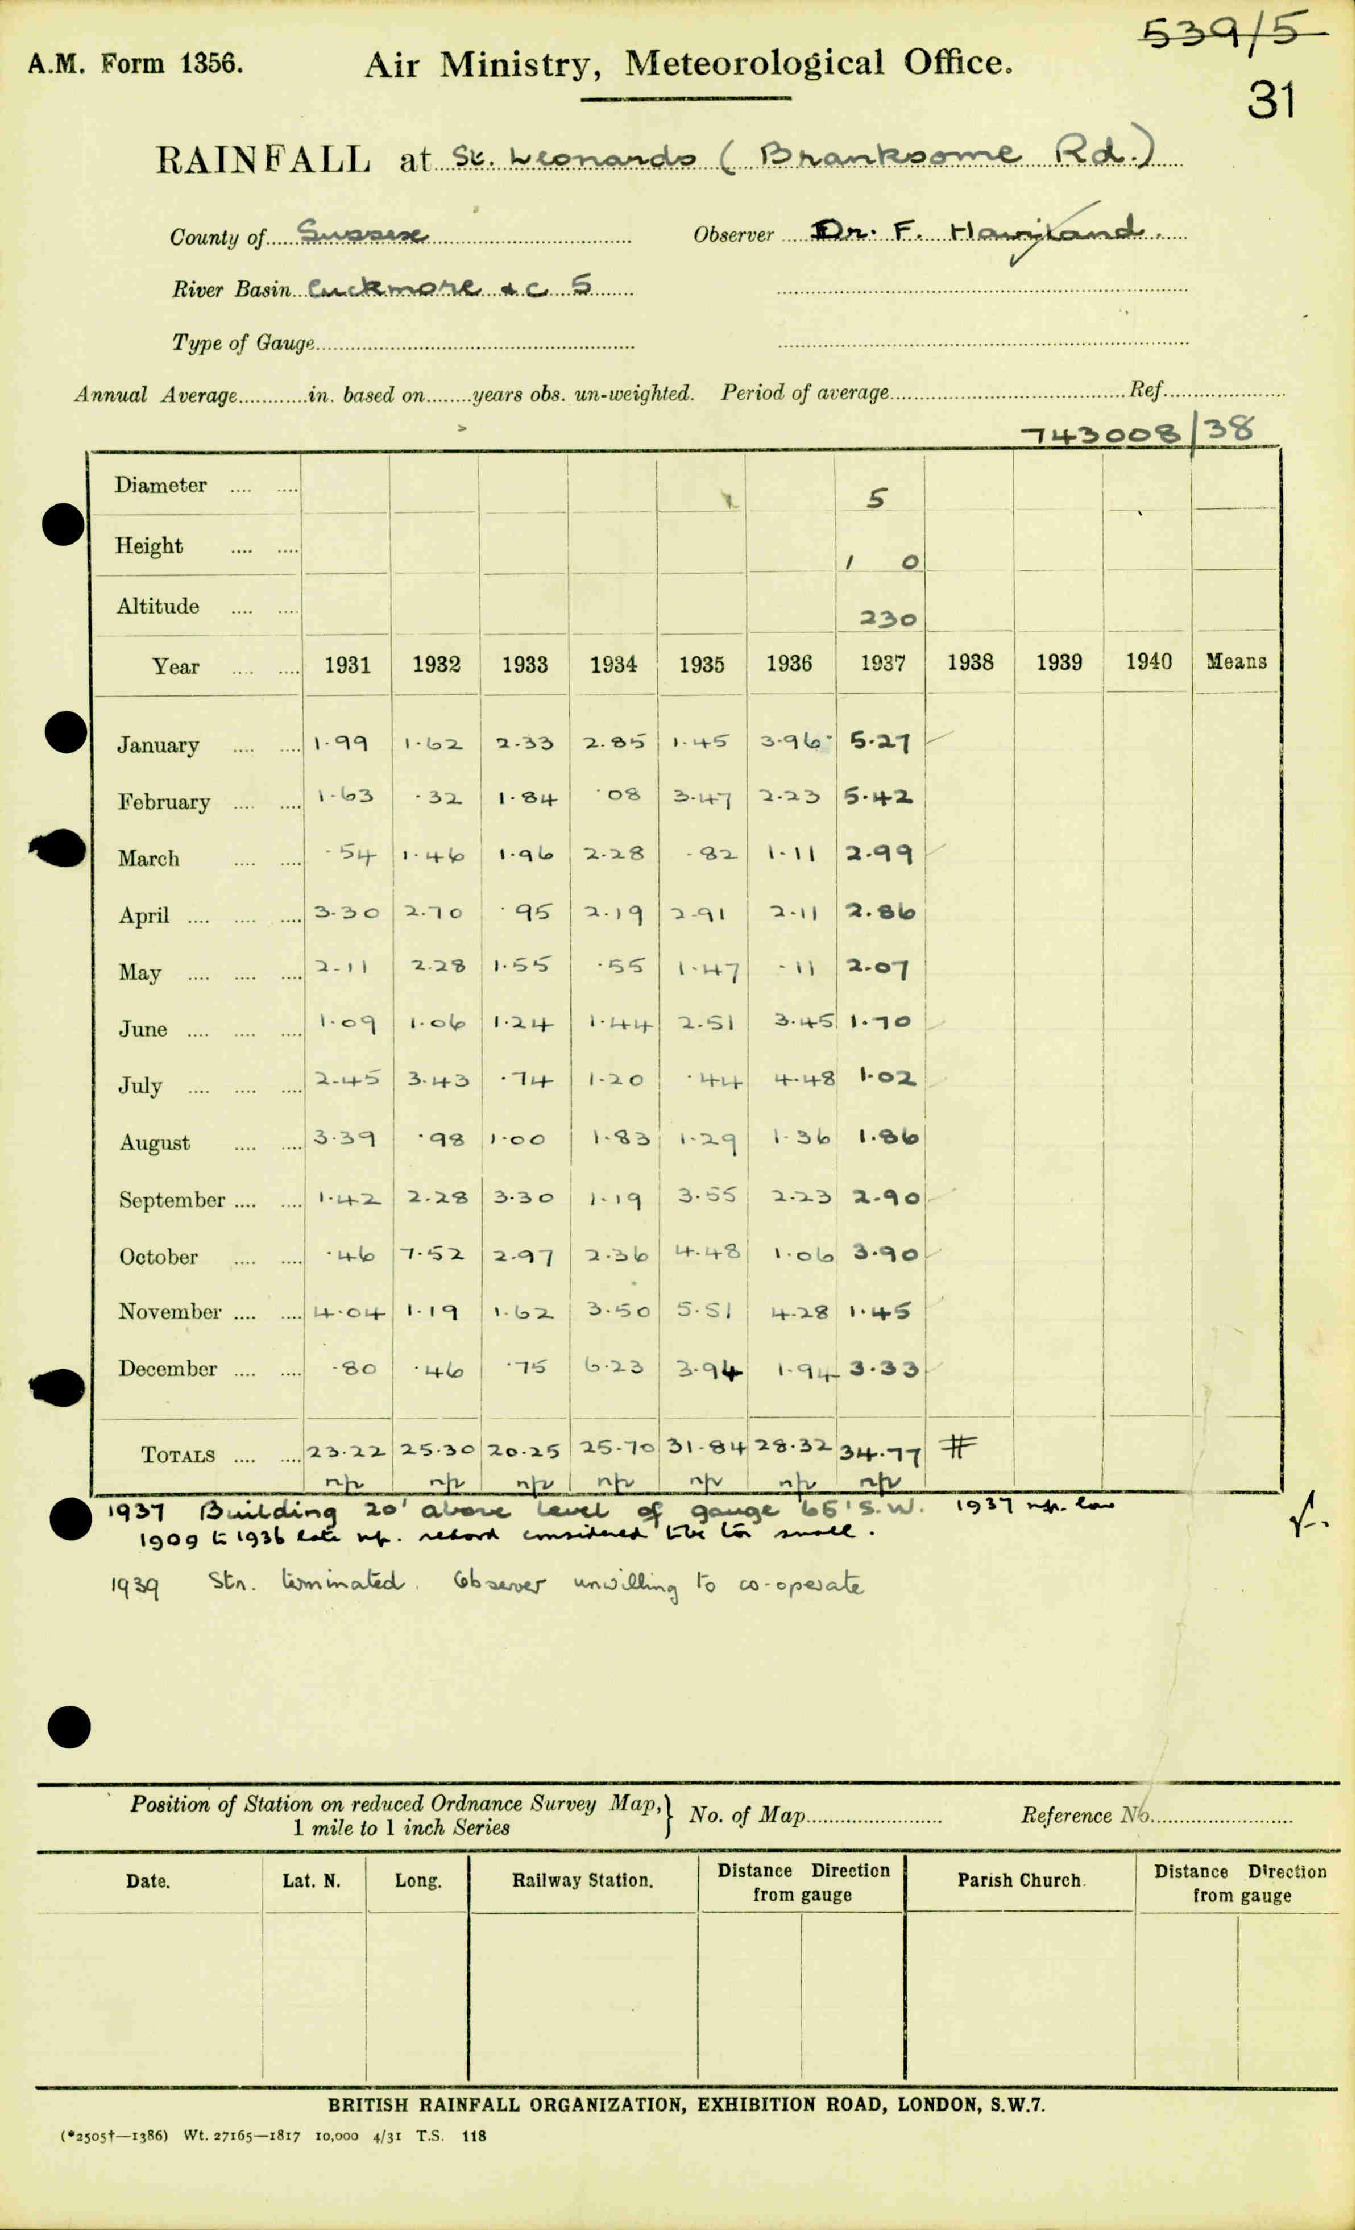 539/5
A.M. Form 1356. Air Ministry, Meteorological Office.
31
RAINFALL at St. Leonards ( Branksome Rd.)
County of Sussex Observer Dr. F. Haviland.
River Basin Cuckmere &c 5
Type of Gauge
Annual Average in. based on years obs. un-weighted. Period of average Ref.
743008/38
Diameter 5
Height 1 0
Altitude 230
Year 1931 1932 1933 1934 1935 1936 1937 1938 1939 1940 Means
January 1.99 1.62 2.33 2.85 1.45 3.96 5.27
February 1.63 .32 1.84 .08 3.47 2.23 5.42
March .54 1.46 1.96 2.28 .82 1.11 2.99
April 3.30 2.70 .95 2.19 2.91 2.11 2.86
May 2.11 2.28 1.55 .55 1.47 .11 2.07
June 1.09 1.06 1.24 1.44 2.51 3.45 1.70
July 2.45 3.43 .74 1.20 .44 4.48 1.02
August 3.39 .98 1.00 1.83 1.29 1.36 1.86
September 1.42 2.28 3.30 1.19 3.55 2.23 2.90
October .46 7.52 2.97 2.36 4.48 1.06 3.90
November 4.04 1.19 1.62 3.50 5.51 4.28 1.45
December .80 .46 .75 6.23 3.94 1.94 3.33
TOTALS 23.22 25.30 20.25 25.70 31.84 28.32 34.77 #
np np np np np np np
1937 Building 20' above level of gauge 65' S.W. 1937 np. low
1909 to 1936 late np. record considered to be too small.
1939 Stn. terminated. Observer unwilling to co-operate
Position of Station on reduced Ordnance Survey Map, } No. of Map Reference No.
1 mile to 1 inch Series
Date. Lat. N. Long. Railway Station. Distance Direction from gauge Parish Church. Distance Direction from gauge
BRITISH RAINFALL ORGANIZATION, EXHIBITION ROAD, LONDON, S.W.7.
(*2505†—1386) Wt. 27165—1817 10,000 4/31 T.S. 118